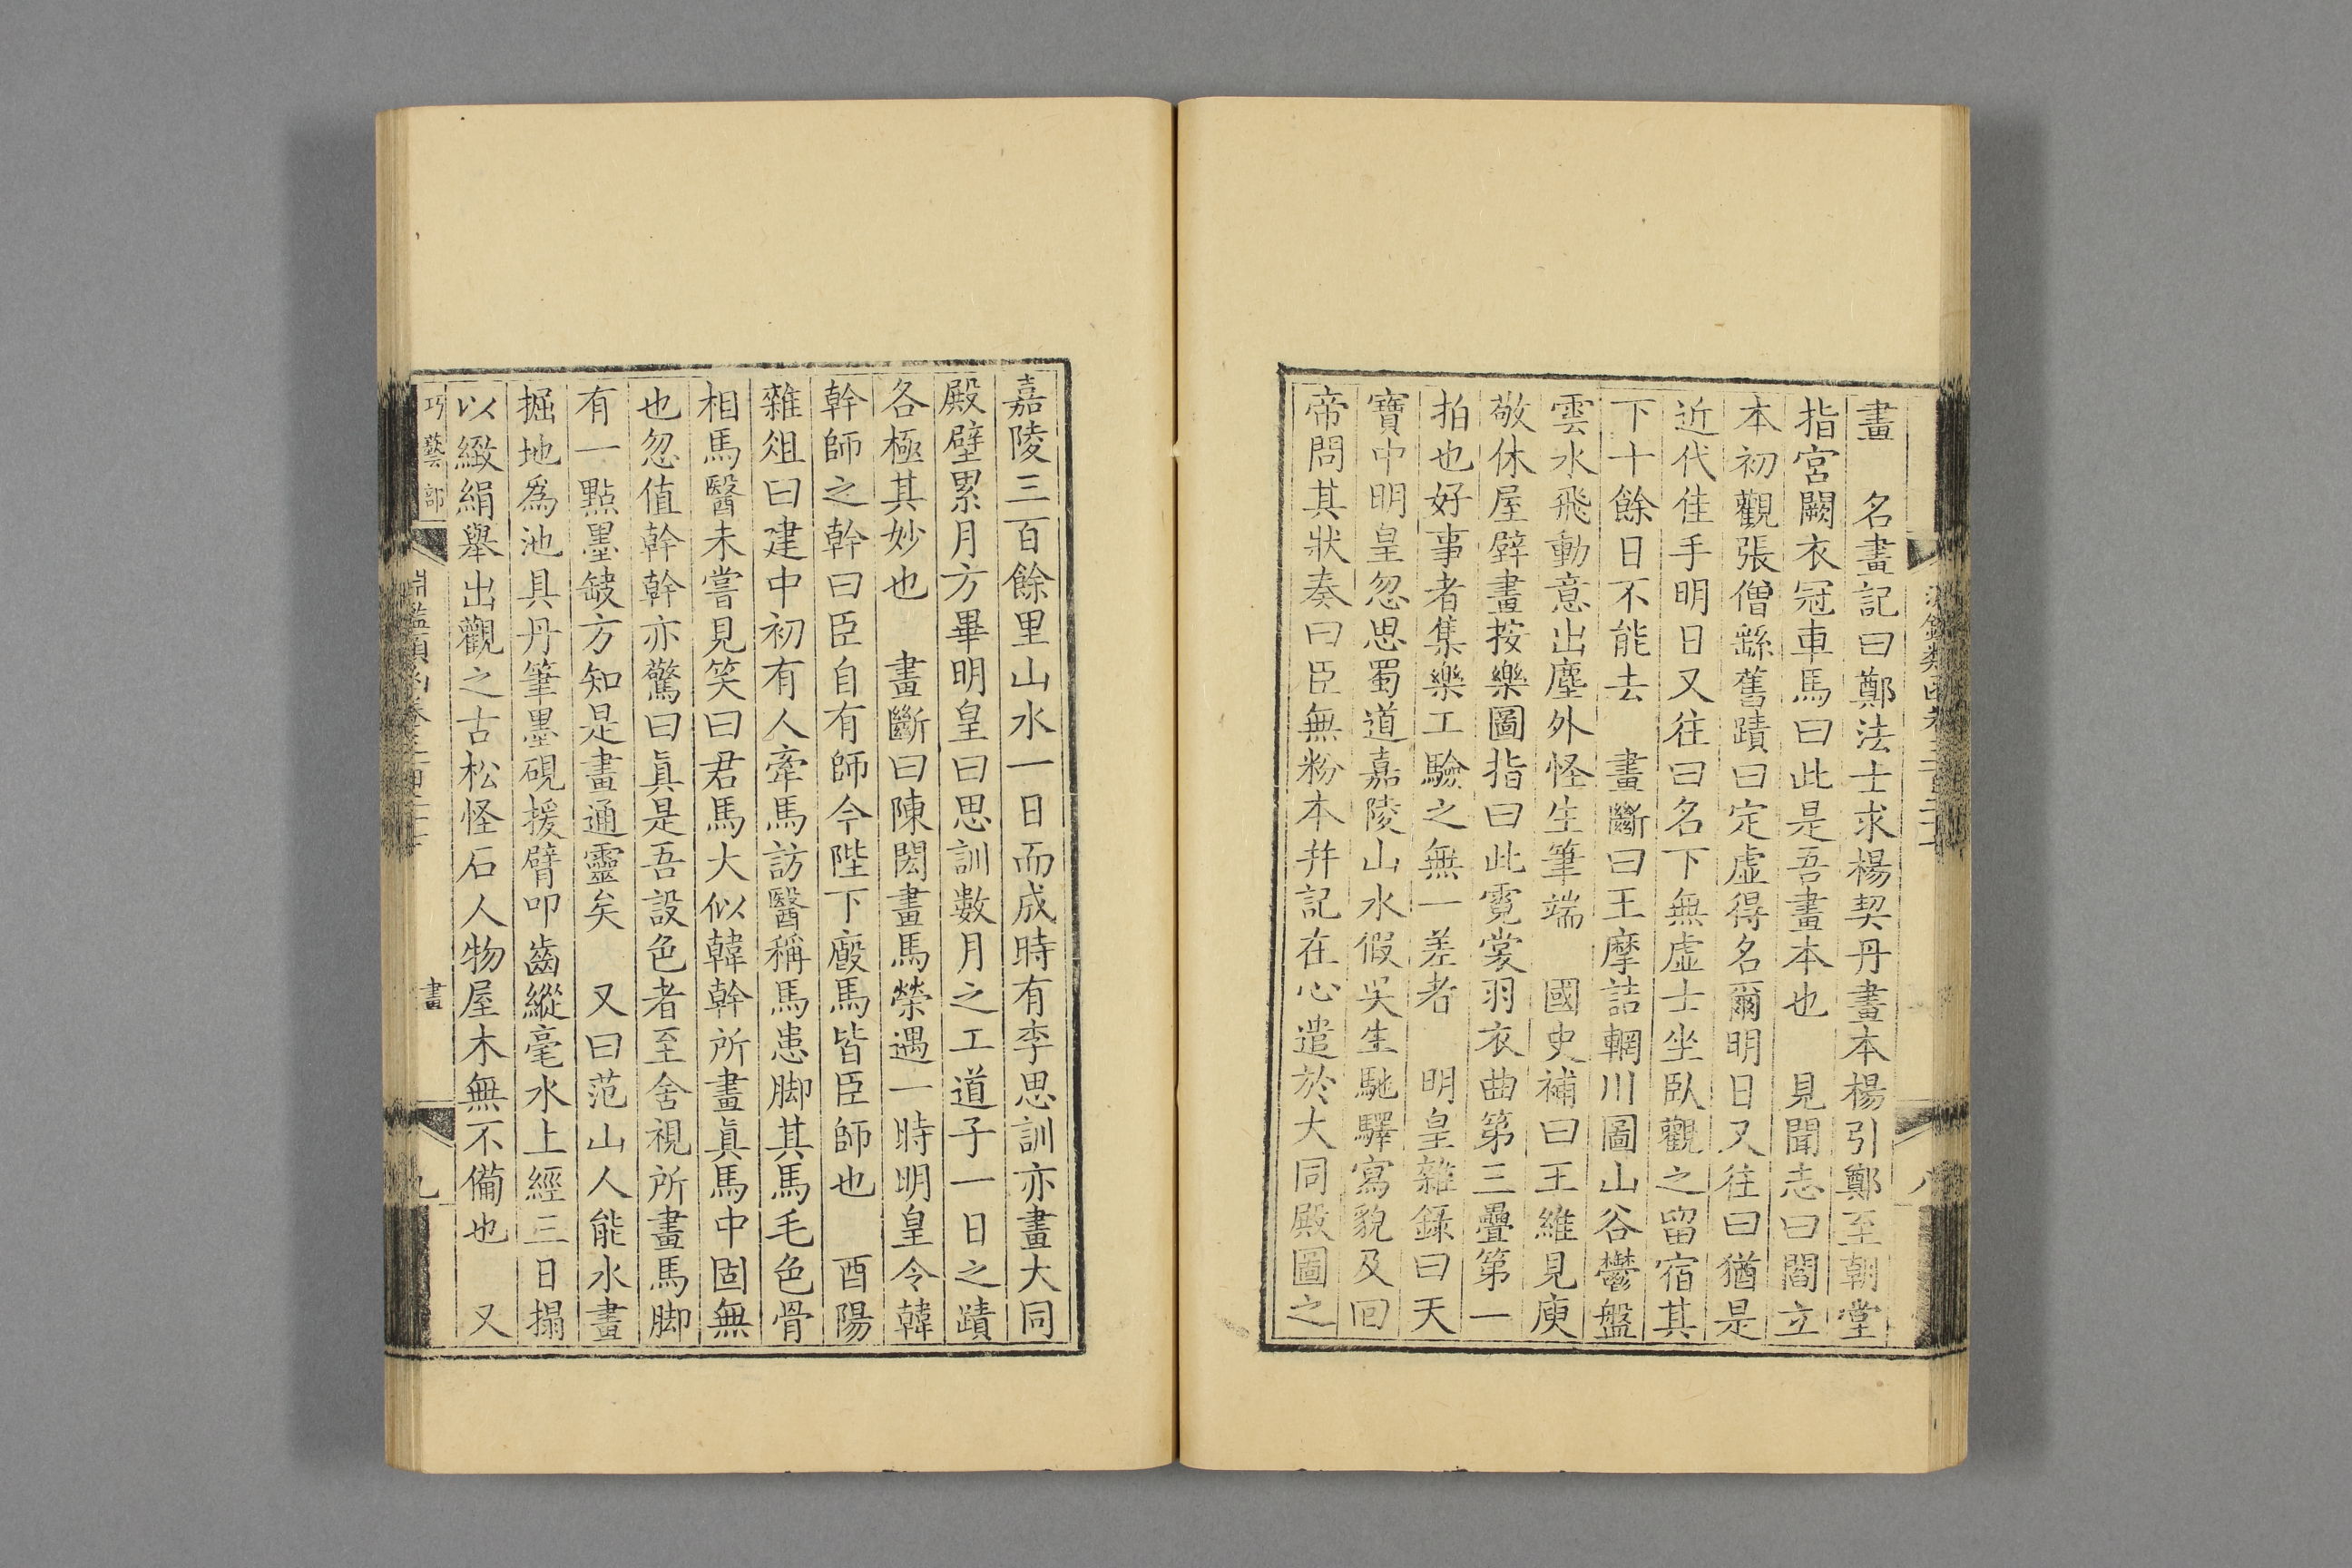 畫　名畫記曰鄭法士求楊契丹畫本楊引鄭至朝堂
指宮闕衣冠車馬曰此是吾畫本也　見聞志曰閻立
本初觀張僧繇舊蹟曰定虛得名爾明日又往曰猶是
近代佳手明日又往曰名下無虛士坐臥觀之留宿其
下十餘日不能去　畫斷曰王摩詰輞川圖山谷鬱盤
雲水飛動意出塵外怪生筆端　國史補曰王維見庾
敬休屋壁畫按樂圖指曰此霓裳羽衣曲第三疊第一
拍也好事者集樂工驗之無一差者　明皇雜錄曰天
寶中明皇忽思蜀道嘉陵山水假吳生馳驛寫貌及回
帝問其狀奏曰臣無粉本并記在心遣於大同殿圖之
八
嘉陵三百餘里山水一日而成時有李思訓亦畫大同
殿壁累月方畢明皇曰思訓數月之工道子一日之蹟
各極其妙也　畫斷曰陳閎畫馬榮遇一時明皇令韓
幹師之幹曰臣自有師今陛下廄馬皆臣師也　酉陽
雜俎曰建中初有人牽馬訪醫稱馬患脚其馬毛色骨
相馬醫未嘗見笑曰君馬大似韓幹所畫眞馬中固無
也忽值幹幹亦驚曰眞是吾設色者至舍視所畫馬脚
有一點墨缺方知是畫通靈矣　又曰范山人能水畫
掘地爲池具丹筆墨硯援臂叩齒縱毫水上經三日搨
以緻絹舉出觀之古松怪石人物屋木無不備也　又
巧藝部
畫
九